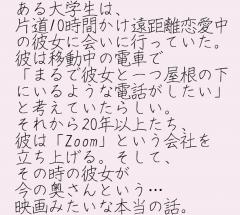 ある大学生は、
片道10時間かけ遠距離恋愛中
の彼女に会いに行っていた。
彼は移動中の電車で
「まるで彼女と一つ屋根の下
にいるような電話がしたい」
と考えていたらしい。
それから20年以上たち、
彼は「Zoom」という会社を
立ち上げる。そして、
その時の彼女が
今の奥さんという…
映画みたいな本当の話。